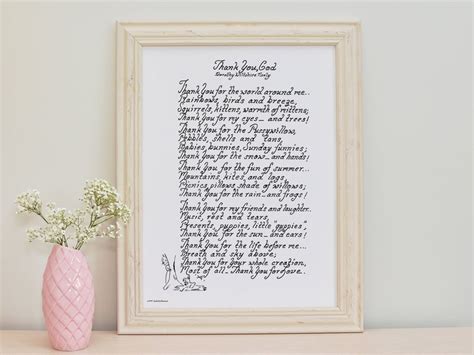 Thank You, God
Dorothy Wiltshire Neely
Thank You for the world around me..
Rainbows, birds and breeze,
Squirrels, kittens, warmth of mittens;
Thank You for my eyes — and trees!
Thank You for the Pussywillow,
Pebbles, shells and tans,
Babies, bunnies, Sunday funnies;
Thank You for the snow — and hands!
Thank You for the fun of summer...
Mountains, kites, and logs
Picnics, pillows, shade of willows;
Thank You for the rain — and frogs!
Thank You for my friends and laughter..
Music, rest and tears,
Presents, puppies, little "guppies",
Thank You for the sun — and ears!
Thank You for the life before me...
Breath and sky above;
Thank You for Your whole creation,
Most of all — Thank You for love..